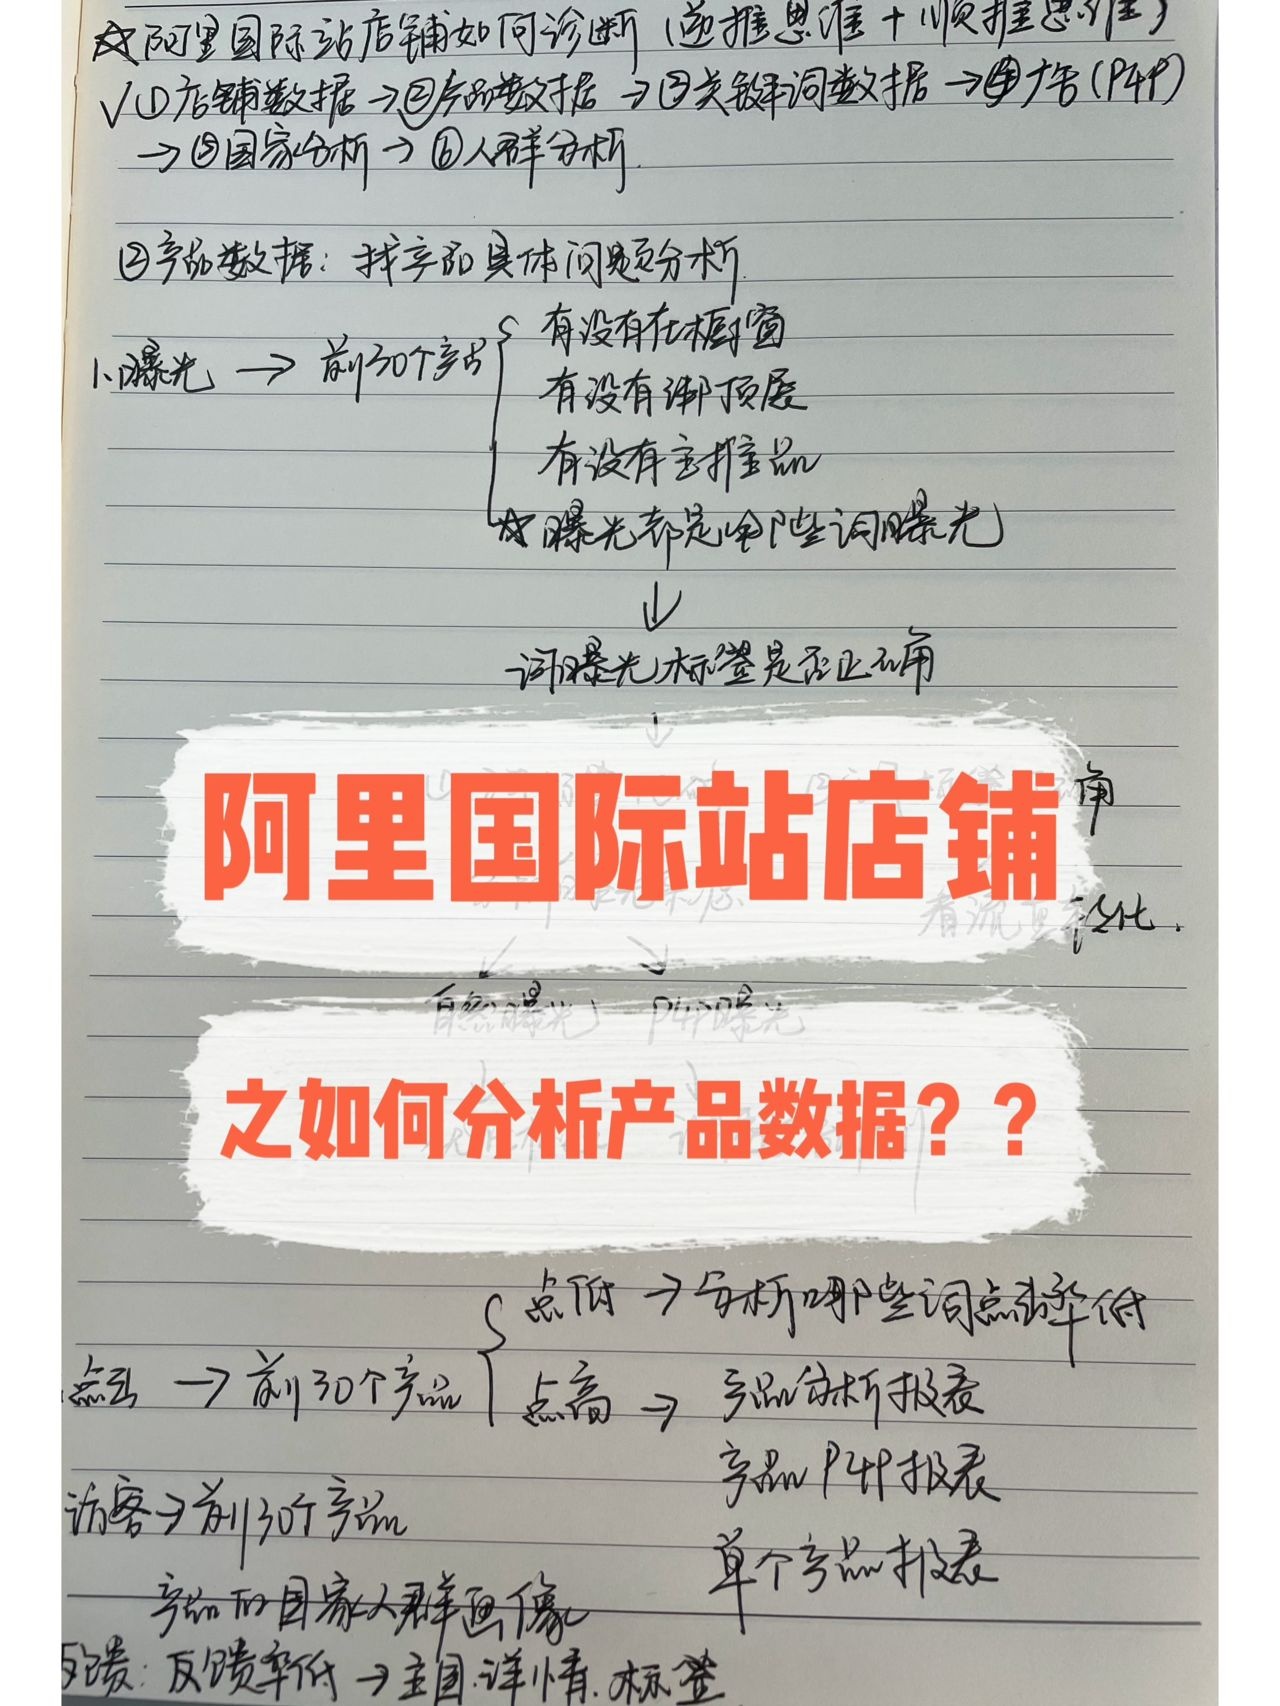 ☆阿里国际站店铺如何诊断(逆推思维+顺推思维)
√①店铺数据→②产品数据→③关键词数据→④广告(P4P)
→⑤国家分析→⑥人群分析.
②产品数据:找产品具体问题分析.
1.曝光→前30个产品
有没有在橱窗
有没有绑顶展
有没有主推品
☆曝光都是哪些词曝光
↓
词曝光标签是否正确
↓
阿里国际站店铺
转化.
自然曝光 P4P曝光
之如何分析产品数据??
点击→前30个产品
点低→分析哪些词点击率低
点高→产品分析报表
产品P4P报表
单个产品报表
访客→前30个产品
产品的国家人群画像
反馈:反馈率低→主图.详情.标签